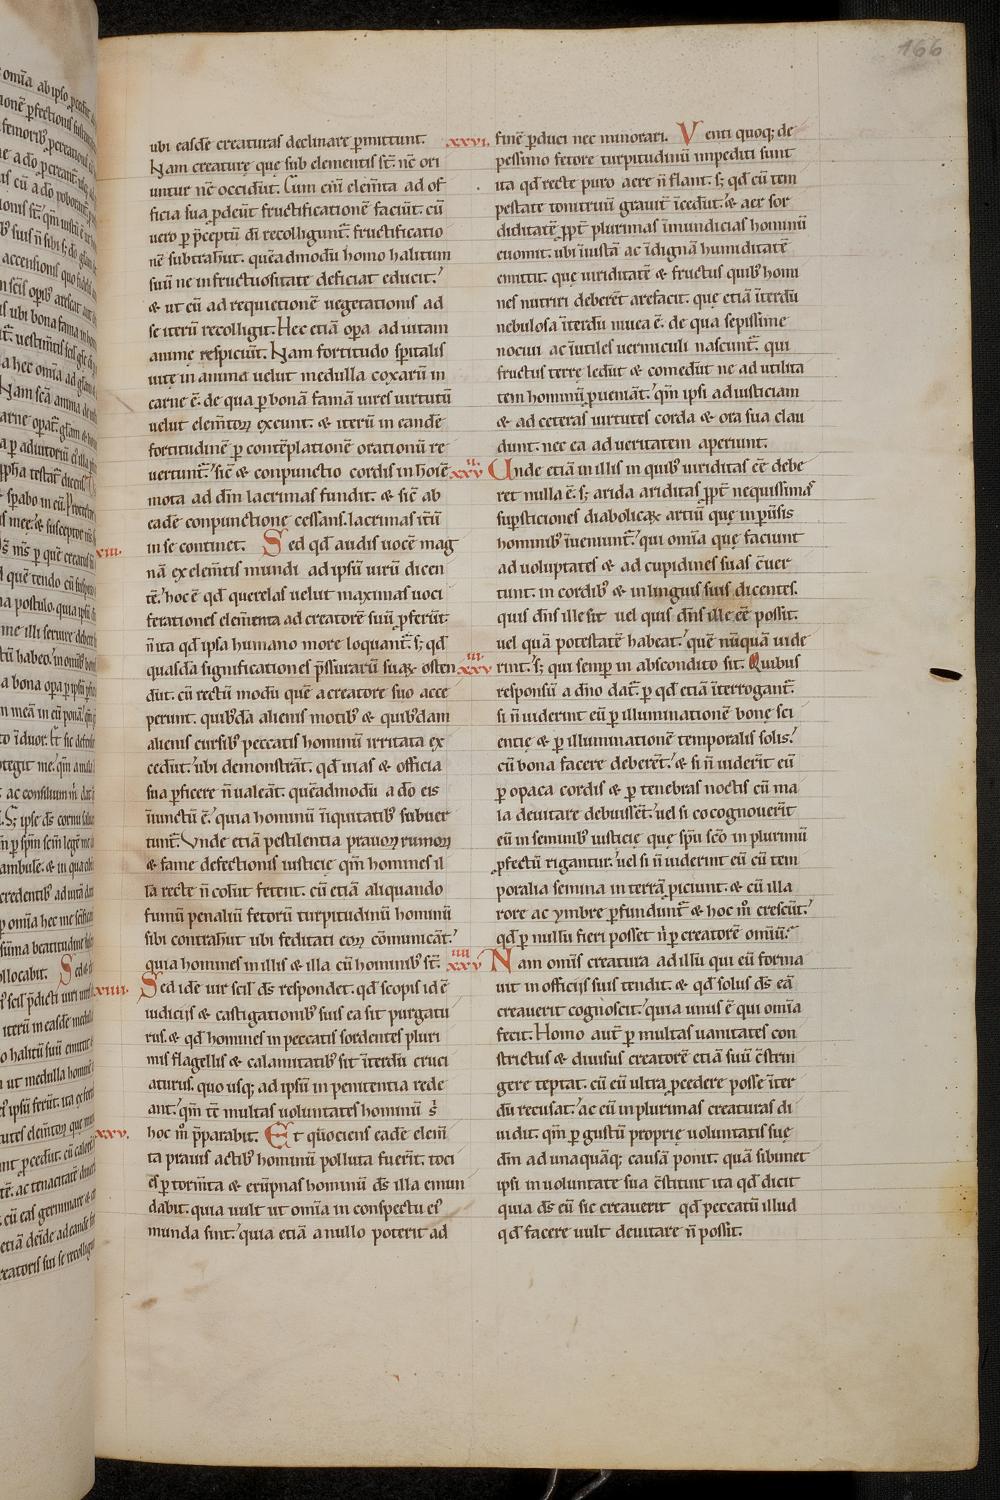 166
ubi easdē creaturas declinare ꝑmittunt.
Nam creature que sub elementis st̄. nē ori
untur nē occidūt. Cum em̄ elem̄ta ad of
ficia sua ꝓdeūt fructificationē faciūt. cū
uero ꝑ p̄ceptū dī recolligunt̄. fructificatio
nē subtrahūt. quēadmodū homo halitum
suū ne in fructuositate deficiat educit.
& ut eū ad requietionē uegetationis ad
se iterū recolligit. Hec etiā oꝑa ad uitam
anime respiciūt. Nam fortitudo spiritalis
uite in anima uelut medulla coxarū in
carne ē. de qua ꝑ bonā famā uires uirtutū
uelut elem̄toꝝ exeunt. & iterū in eandē
fortitudinē ꝑ contēplationē orationū re
uertunt̄. sic̄ & conpunctio cordis in hoīe
mota ad dīn lacrimas fundit. & sic̄ ab
eadē conpunctione cessans. lacrimas itū
in se continet. Sed qd̄ audis uocē mag
nā ex elem̄tis mundi ad ipsū uirū dicen
tē. hoc ē qd̄ querelas uelut maximas uoci
ferationes elem̄enta ad creatorē suū ꝓferūt.
n̄ ita qd̄ ipsa humano more loquant̄. s; qd̄
quasdā significationes p̄ssurarū suaꝝ osten
dūt. cū rectū modū quē a creatore suo acce
perunt. quibꝰdā alienis motibꝰ & quibꝰdam
alienis cursibꝰ peccatis hominū irritata ex
cedūt. ubi demonstrāt. qd̄ uias & officia
sua ꝑficere n̄ ualeāt. quēadmodū a do eis
iniunctū ē. quia hominū iniquitatibꝰ subuer
tunt̄. Vnde etiā pestilentia prauoꝝ rumoꝝ
& fame defectionis iusticie qm̄ homines il
la recte n̄ colūt fetent. cū etiā aliquando
fumū penaliū fetorū turpitudinū hominū
sibi contrahūt ubi feditati eoꝝ cōmunicāt.
quia homines in illis & illa cū hominibꝰ st̄.
Sed idē uir scil̄ ds̄ respondet. qd̄ scopis id ē
iudiciis & castigationibꝰ suis ea sit purgatu
rus. & qd̄ homines in peccatis sordentes pluri
mis flagellis & calamitatibꝰ sit īterdū cruci
aturus. quo usq; ad ipsū in penitentia rede
ant. qm̄ tē multas uoluntates hominū s̄
hoc m̄ p̄parabit. Et quociens eadē elem̄
ta prauis actibꝰ hominū polluta fuerīt. toci
es ꝑ torm̄ta & erūpnas hominū ds̄ illa emun
dabit. quia uult ut omīa in conspectu eiꝰ
munda sint. quia etiā a nullo poterit ad
xxvi. finē ꝑduci nec minorari. Venti quoq; de
pessimo fetore turpitudinū inpediti sunt
ita qd̄ recte puro aere n̄ flant. s; qd̄ cū tem
pestate tonitruū grauit̄ īcedūt. & aer sor
diditatē ꝓpt̄ plurimas īmundicias hominū
euomit. ubi iniustā ac īdignā humiditatē
emittit. que uiriditatē & fructus quibꝰ homi
nes nutriri deberēt arefacit. que etiā īterdū
nebulosa īterdū muca ē. de qua sepissime
nociui ac īutiles uermiculi nascunt̄. qui
fructus terre ledūt & comedūt ne ad utilita
tem hominū ꝑueniāt. qm̄ ipsi ad iusticiam
& ad ceteras uirtutes corda & ora sua clau
dunt. nec ea ad ueritatem aperiunt.
xxvii Unde etiā in illis in quibꝰ uiriditas eē debe
ret nulla ē. s; arida ariditas ꝓpt̄ nequissimas
supsticiones diabolicaꝝ artiū que in ꝑuīsis
hominibꝰ īueniunt̄. qui omīa que faciunt
ad uoluptates & ad cupidines suas c̄uer
tunt. in cordibꝰ & in linguis suis dicentes.
quis dn̄s ille sit uel quis dn̄s ille eē possit.
uel quā potestatē habeat. quē nūquā uide
xxviii rint. s; qui semꝑ in abscondito sit. Quibus
responsū a dn̄o dat̄. ꝑ qd̄ etiā īterrogant̄.
si n̄ uiderint eū ꝑ illuminationē bone sci
entie & ꝑ illuminationē temporalis solis.
cū bona facere deberēt. & si n̄ uiderīt eū
ꝑ opaca cordis & ꝑ tenebras noctis cū ma
la deuitare debuissēt. uel si co cognouerīt
eū in seminibꝰ iusticie que spū scō in plurimū
ꝓfectū rigantur. uel si n̄ uiderint eū cū tem
poralia semina in terrā ꝓiciunt. & cū illa
rore ac ymbre ꝑfundunt̄ & hoc m̄ crescūt.
qd̄ ꝑ nullū fieri posset n̄ ꝑ creatorē omīū.
xxviiii Nam omīs creatura ad illū qui eū forma
uit in officiis suis tendit. & qd̄ solus ds̄ eā
creauerit cognoscit. quia unus ē qui omīa
fecit. Homo aut̄ ꝑ multas uanitates con
strictus & diuisus creatorē etiā suū c̄strin
gere teptat. cū eū ultra ꝓcedere posse īter
dū recusat. ac cū in plurimas creaturas di
uidit. qm̄ ꝑ gustū proprie uoluntatis sue
dīn ad unaquāq; causā ponit. quā sibimet
ipsi in uoluntate sua c̄stituit ita qd̄ dicit
quia ds̄ eū sic creauerit qd̄ peccatū illud
qd̄ facere uult deuitare n̄ possit.